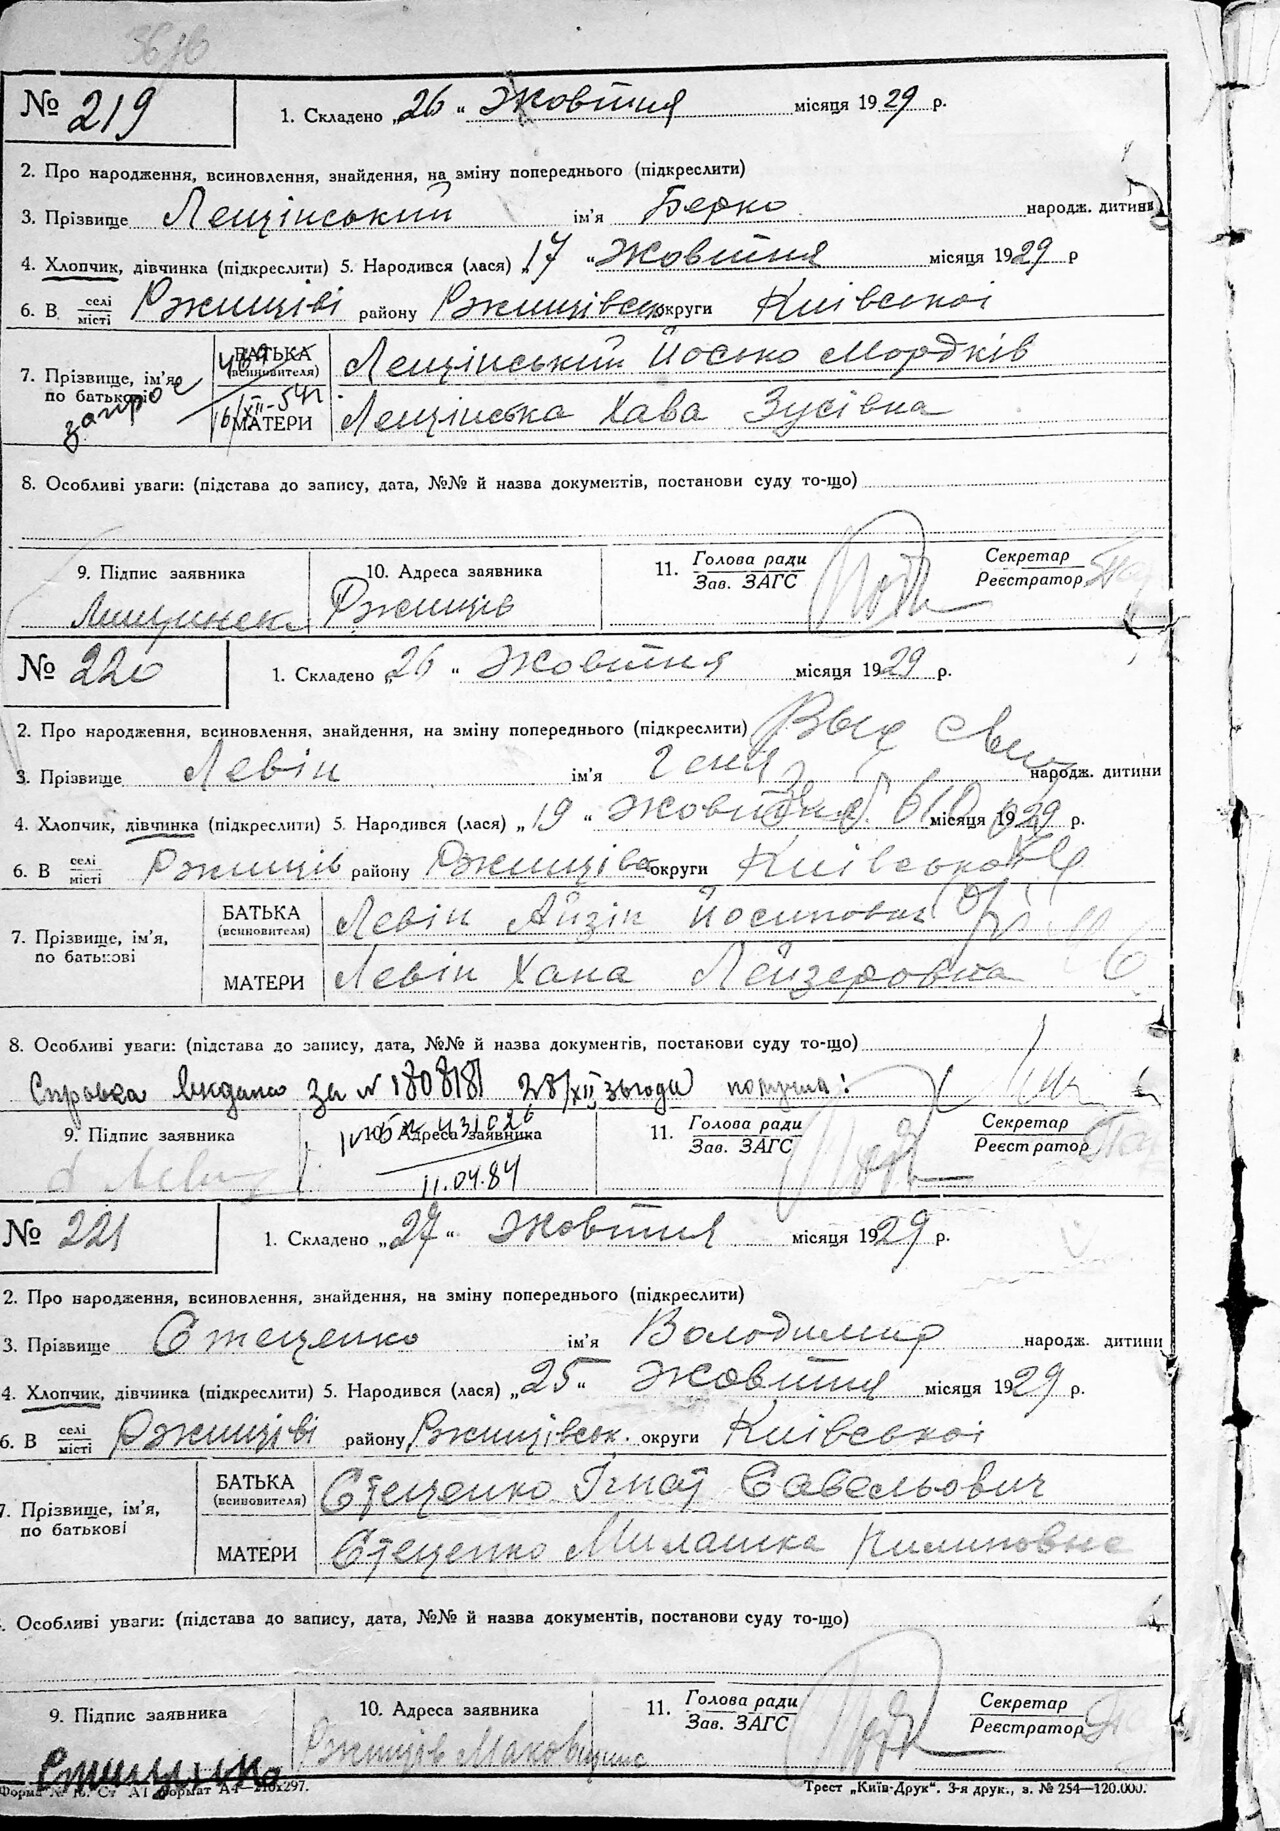 № 219
1. Складено „26“ Жовтня місяця 1929 р.
2. Про народження, всиновлення, знайдення, на зміну попереднього (підкреслити)
3. Прізвище Лещінський ім'я Берко народж. дитини
4. Хлопчик, дівчинка (підкреслити) 5. Народився (лася) „17“ Жовтня місяця 1929 р
6. В селі місті Ржищіві району Ржищівськ округи Київської
7. Прізвище, ім'я, по батькові
БАТЬКА (всиновителя) Лещінський Йосько Мордків
МАТЕРИ Лещінська Хава Зусівна
8. Особливі уваги: (підстава до запису, дата, №№ й назва документів, постанови суду то-що)
9. Підпис заявника 10. Адреса заявника 11. Голова ради Зав. ЗАГС Секретар Реєстратор
Ржищів
№ 220
1. Складено „26“ Жовтня місяця 1929 р.
2. Про народження, всиновлення, знайдення, на зміну попереднього (підкреслити)
3. Прізвище Левін ім'я Геня народж. дитини
4. Хлопчик, дівчинка (підкреслити) 5. Народився (лася) „19“ Жовтня місяця 1929 р.
6. В селі місті Ржищів району Ржищівськ округи Київської
7. Прізвище, ім'я, по батькові
БАТЬКА (всиновителя) Левін Айзік Йосипович
МАТЕРИ Левін Хана Лейзеровна
8. Особливі уваги: (підстава до запису, дата, №№ й назва документів, постанови суду то-що)
Справка видана за №
9. Підпис заявника 10. Адреса заявника 11. Голова ради Зав. ЗАГС Секретар Реєстратор
11.04.84
№ 221
1. Складено „27“ Жовтня місяця 1929 р.
2. Про народження, всиновлення, знайдення, на зміну попереднього (підкреслити)
3. Прізвище Стеценко ім'я Володимир народж. дитини
4. Хлопчик, дівчинка (підкреслити) 5. Народився (лася) „25“ Жовтня місяця 1929 р.
6. В селі місті Ржищіві району Ржищівськ. округи Київської
7. Прізвище, ім'я, по батькові
БАТЬКА (всиновителя) Стеценко Ігнат Савельович
МАТЕРИ Стеценко Милашка Пилиповна
Особливі уваги: (підстава до запису, дата, №№ й назва документів, постанови суду то-що)
9. Підпис заявника 10. Адреса заявника 11. Голова ради Зав. ЗАГС Секретар Реєстратор
Ржищів
Формат А4—210х297. Трест „Київ-Друк“. 3-я друк., з. № 254—120.000.